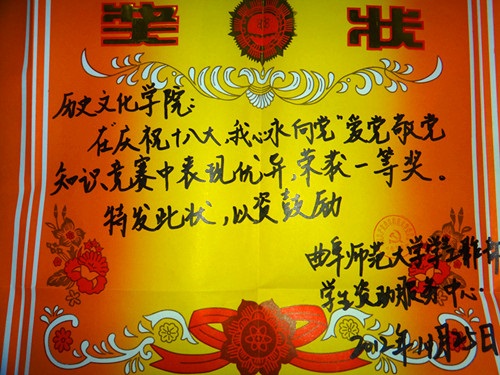 奖状
历史文化学院:
在庆祝十八大,我心永向党"爱党敬党
知识竞赛中表现优异,荣获一等奖。
特发此状,以资鼓励
曲阜师范大学学生工作部
学生资助服务中心
2012年11月25日